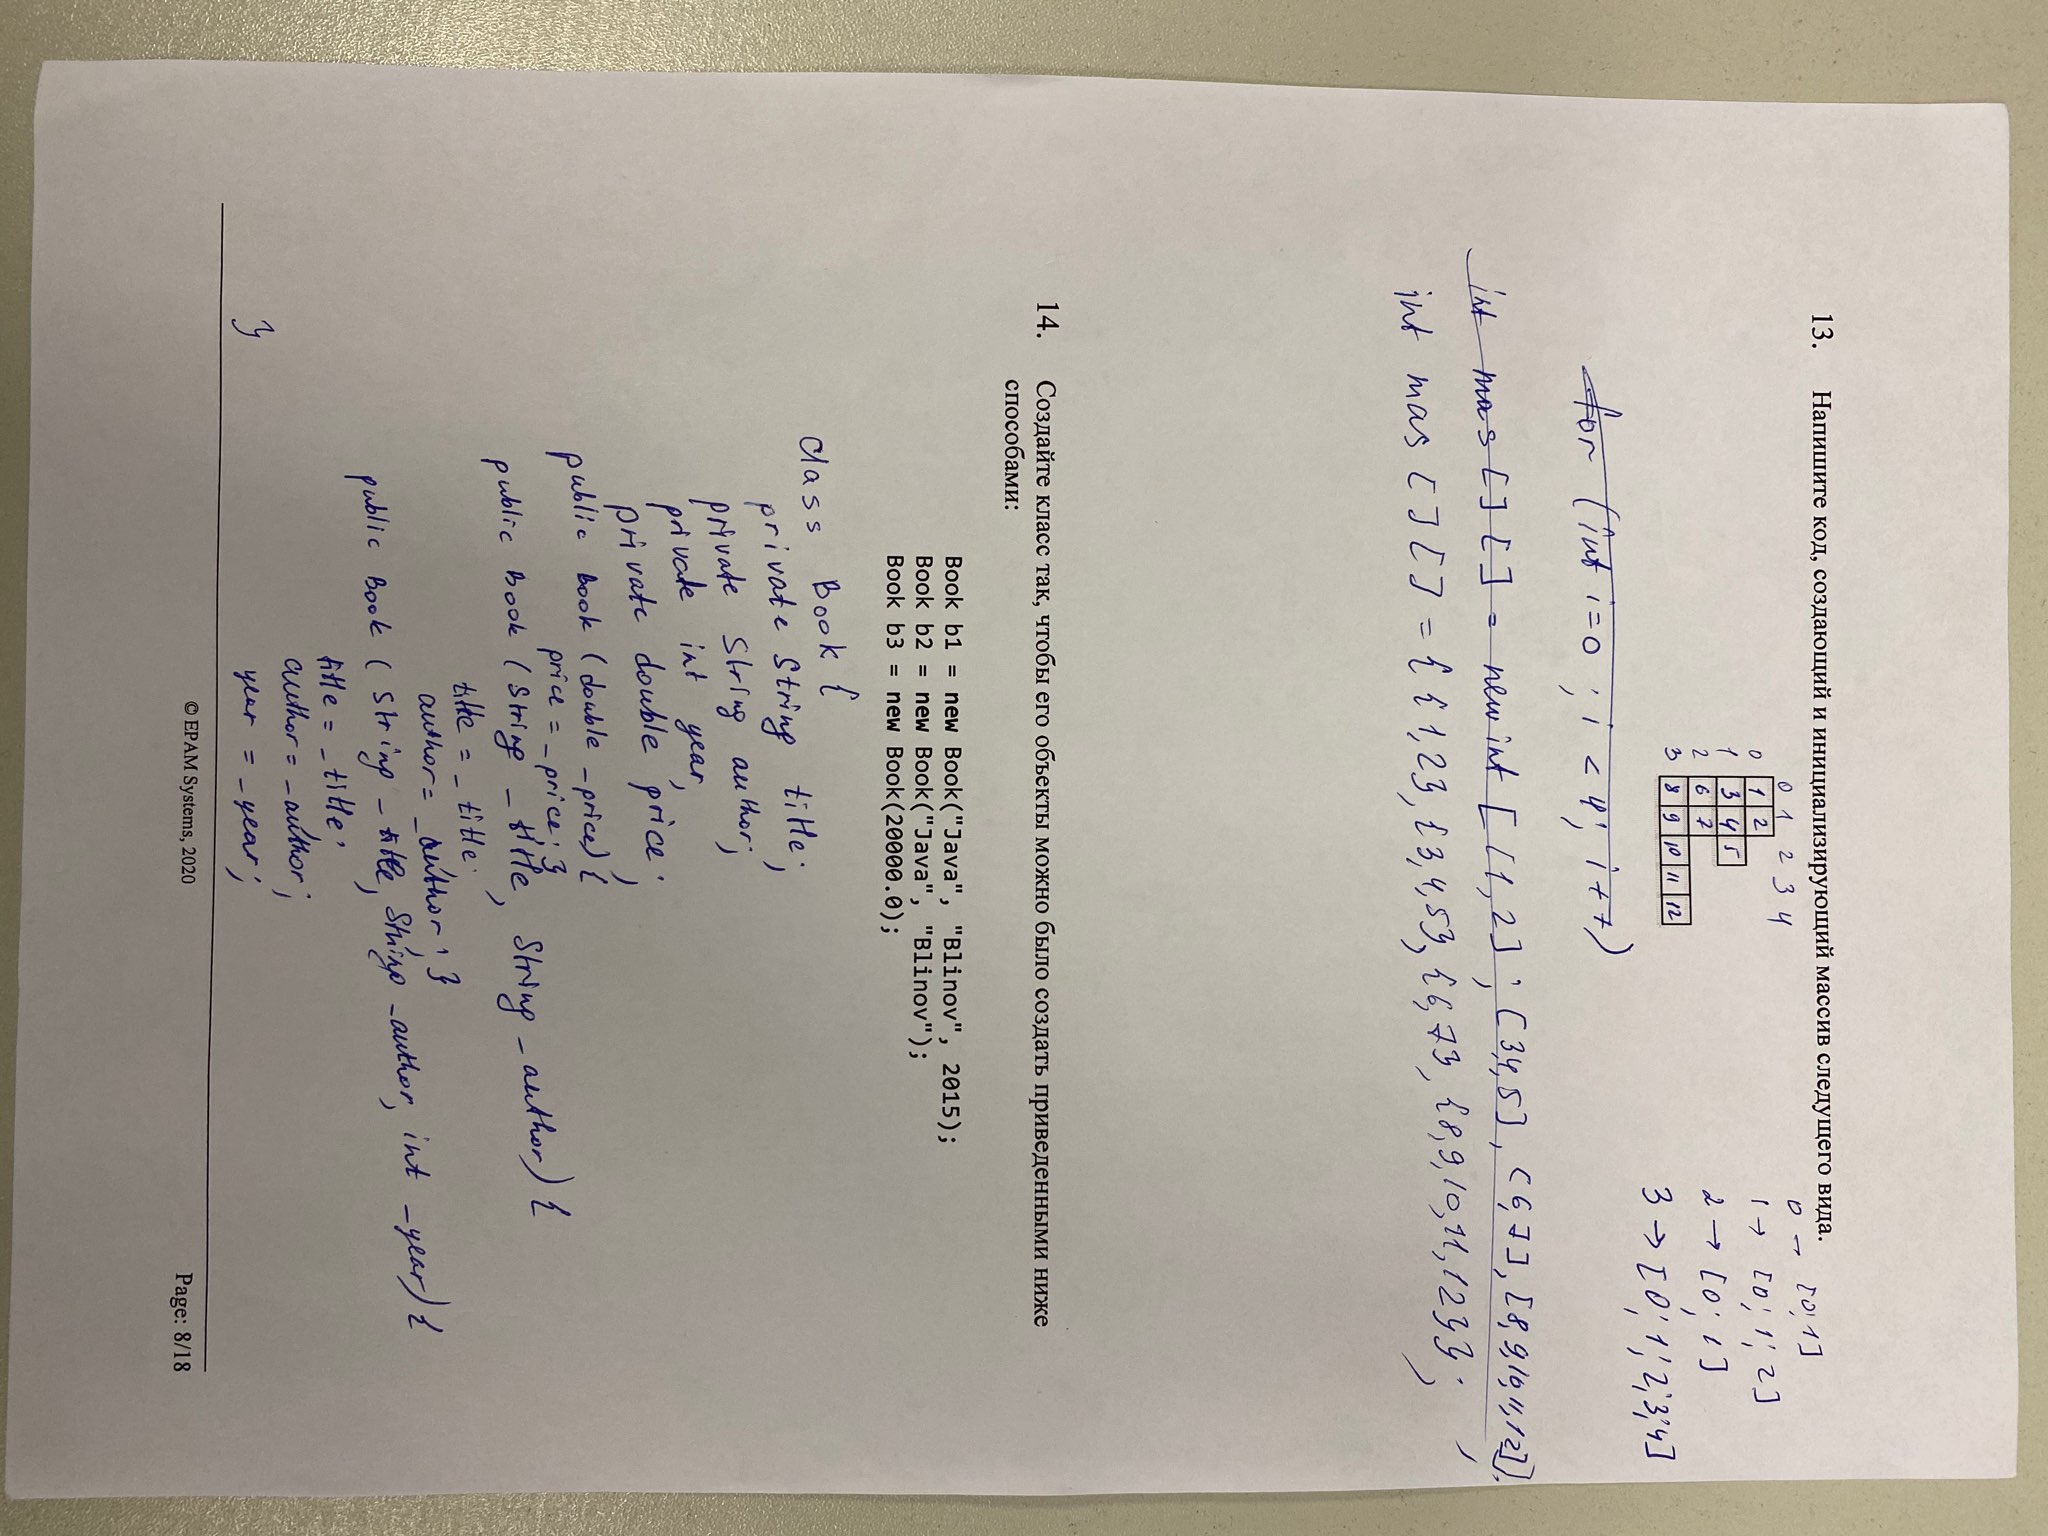 13. Напишите код, создающий и инициализирующий массив следущего вида.
0 → [0;1]
1 → [0; 1; 2]
2 → [0; 1]
3 → [0; 1; 2; 3; 4]
0 1 2 3 4
0 1 2
1 3 4 5
2 6 7
3 8 9 10 11 12
for (int i=0; i < 4; i++)
int mas [] [] = new int [[1,2]; [3,4,5], [6,7], [8,9,10,11,12]];
int mas [] [] = { {1,2}, {3,4,5}, {6,7}, {8,9,10,11,12}};
14. Создайте класс так, чтобы его объекты можно было создать приведенными ниже
способами:
Book b1 = new Book("Java", "Blinov", 2015);
Book b2 = new Book("Java", "Blinov");
Book b3 = new Book(20000.0);
class Book {
private String title;
private String author;
private int year;
private double price;
public book (double _price) {
price = _price; }
public book (String _title, String _author) {
title = _title;
author = _author; }
public book (String _title, String _author, int _year) {
title = _title;
author = _author;
year = _year;
}
© EPAM Systems, 2020
Page: 8/18